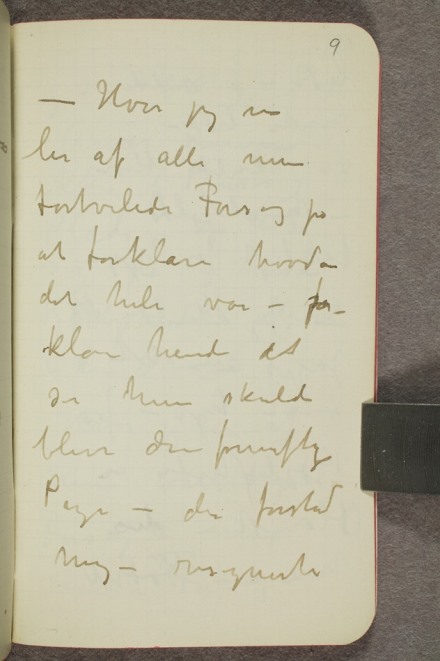 9
— Hvor jeg nu
ler af alle mine
fortvilede Forsøg på
at forklare hvordan
det hele var — for-
klare hende det
så hun skulde
blive den fornuftige
Pige — der forstod
mig — resignerte